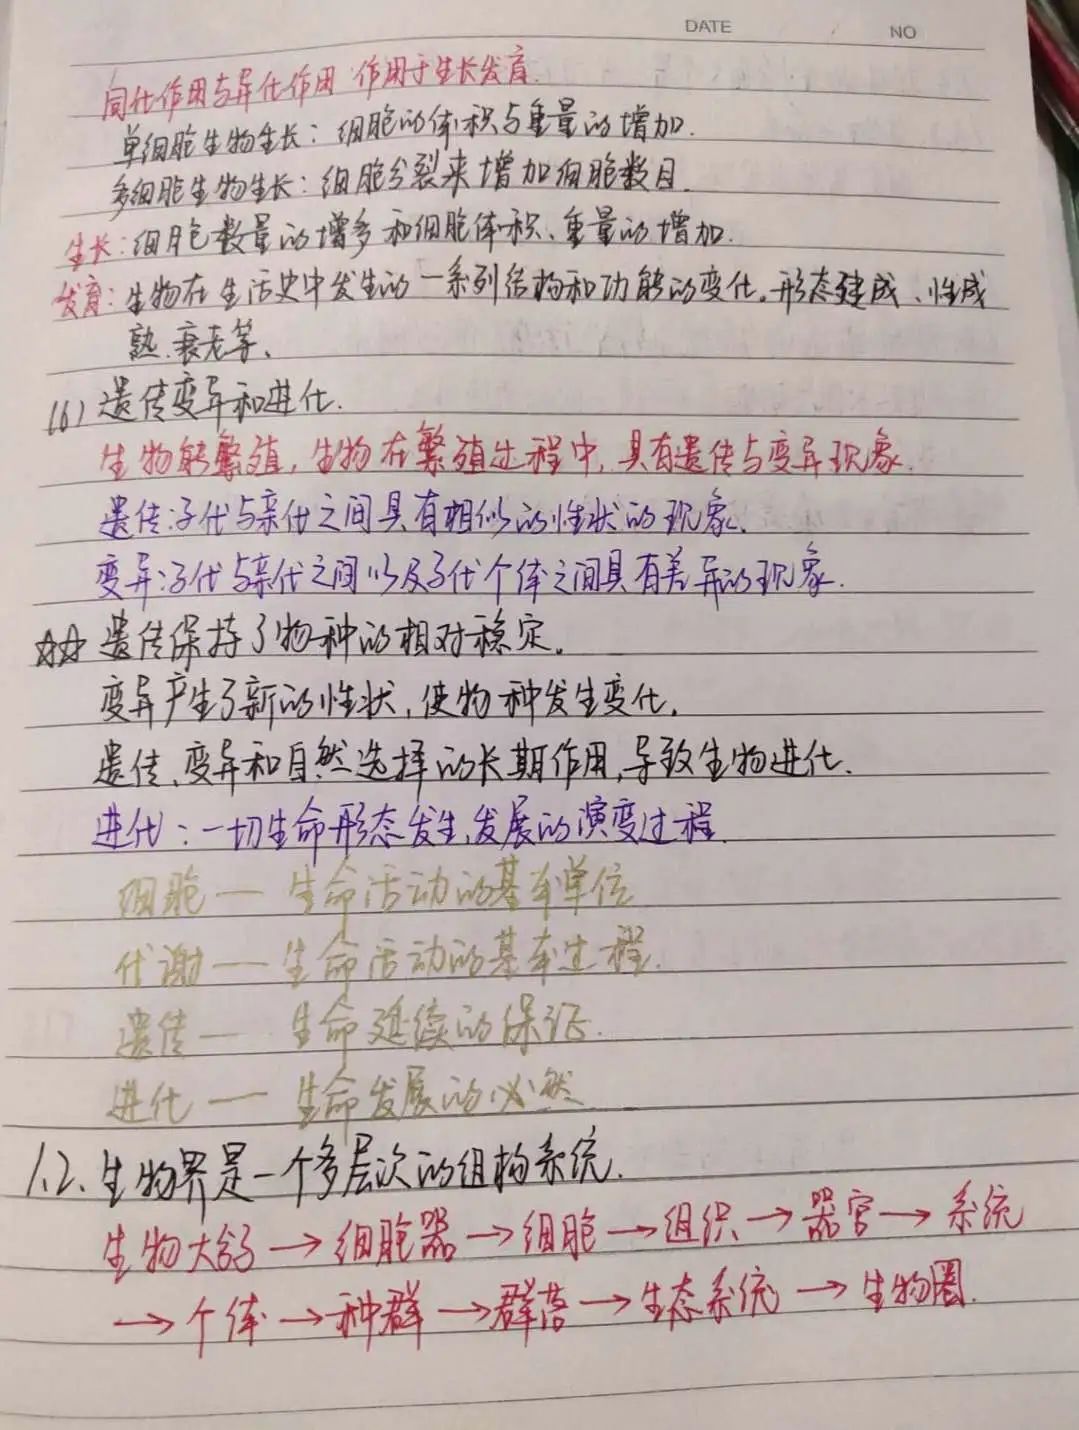 DATE NO
同化作用与异化作用 作用于生长发育.
单细胞生物生长：细胞的体积与重量的增加.
多细胞生物生长：细胞分裂来增加细胞数目.
生长：细胞数量的增多和细胞体积、重量的增加.
发育：生物在生活史中发生的一系列结构和功能的变化。形态建成、性成
熟.衰老等、
(6) 遗传变异和进化.
生物能繁殖，生物在繁殖过程中，具有遗传与变异现象.
遗传：子代与亲代之间具有相似的性状的现象.
变异：子代与亲代之间以及子代个体之间具有差异的现象.
☆☆ 遗传保持了物种的相对稳定。
变异产生了新的性状，使物种发生变化.
遗传、变异和自然选择的长期作用，导致生物进化.
进化：一切生命形态发生、发展的演变过程
细胞 — 生命活动的基本单位
代谢 — 生命活动的基本过程.
遗传 — 生命延续的保证.
进化 — 生命发展的必然
1.2. 生物界是一个多层次的组构系统.
生物大分子→细胞器→细胞→组织→器官→系统
→个体→种群→群落→生态系统→生物圈.